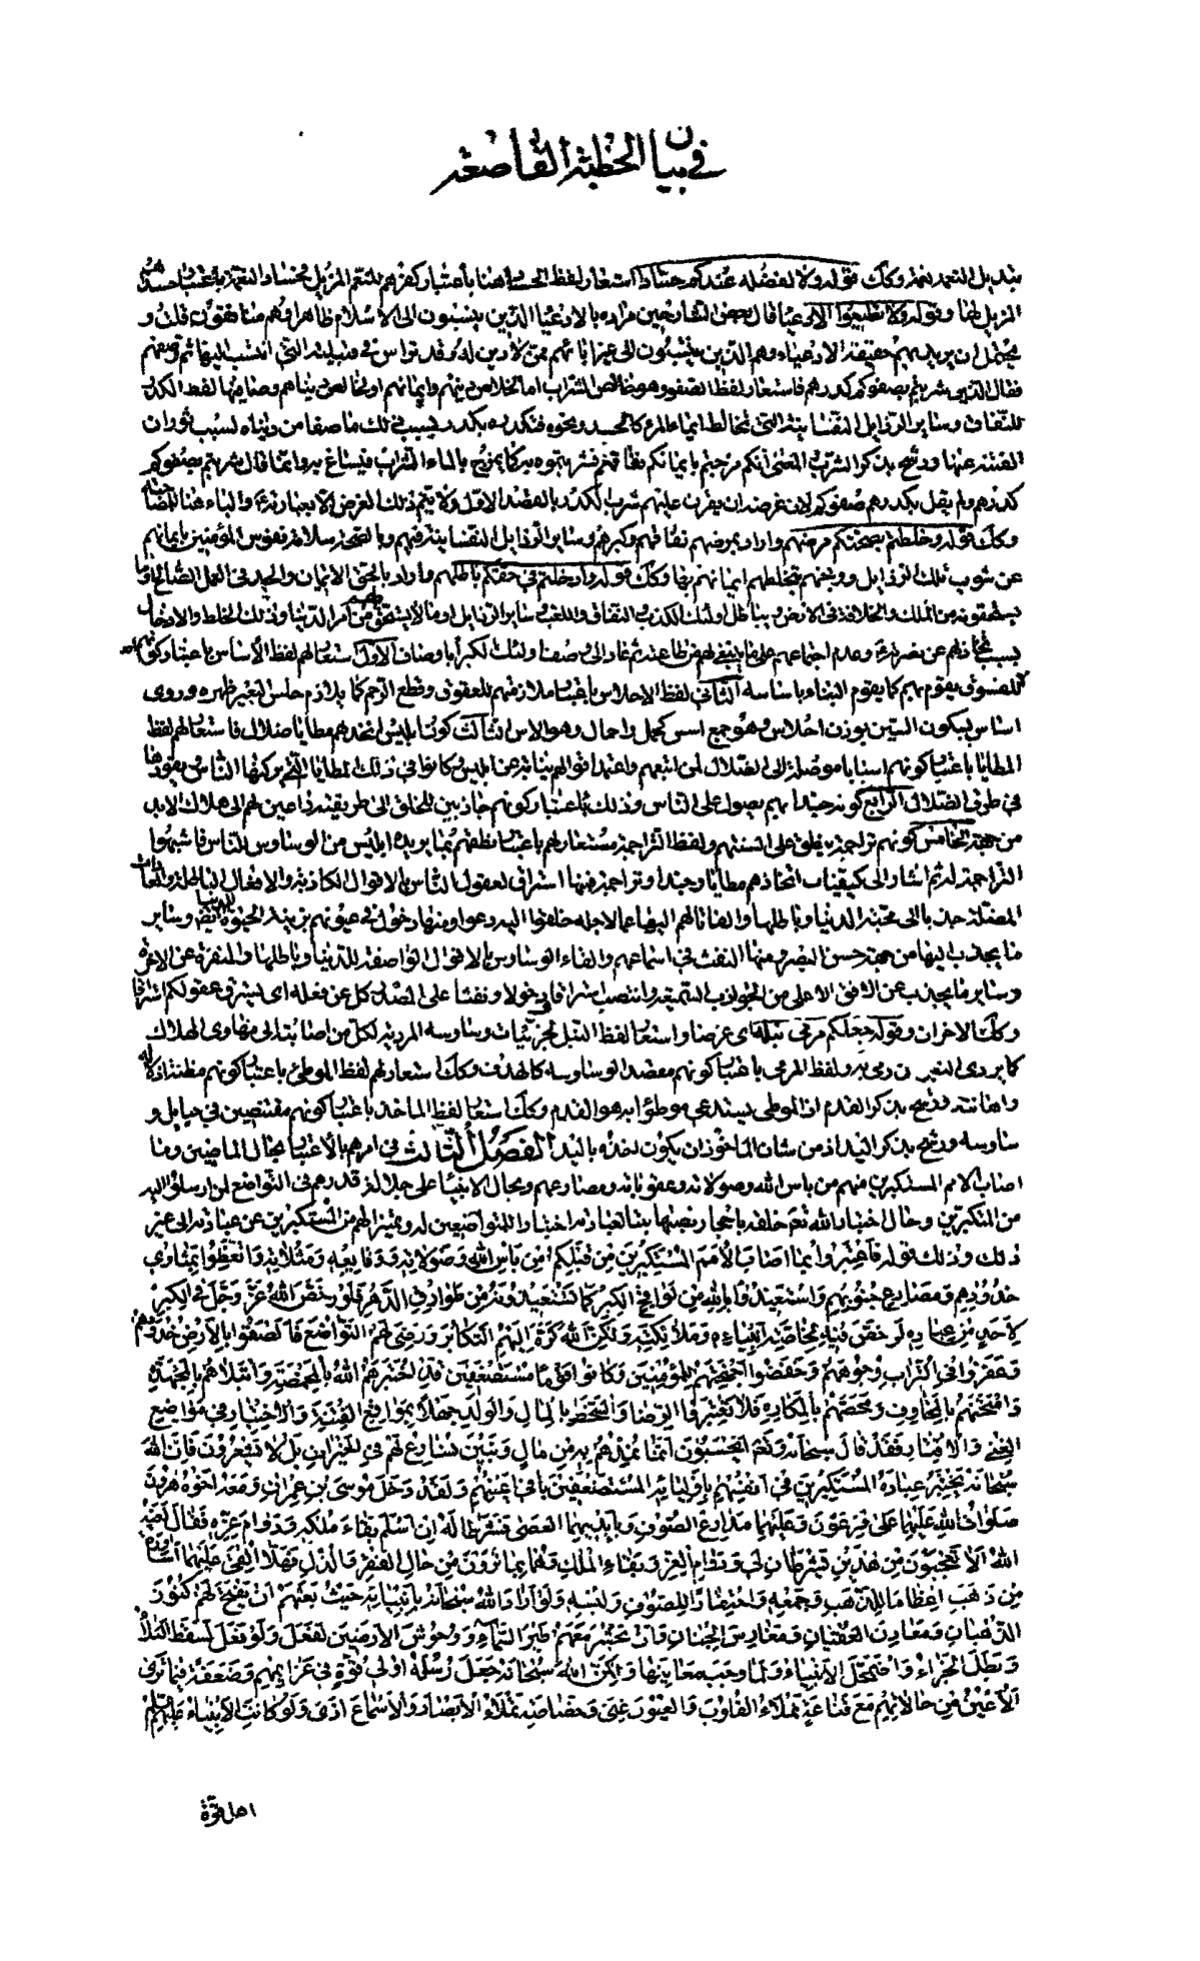 في بيان الخطبة القاصعة
بتبديل النعمة نقمة وكك قوله ولا لفضله عندكم حسادا استعار لفظ الحساد هنا باعتبار كفرهم للنعم المزيل
المزيل لها وقوله ولا تطيعوا الادعياء قال بعض الشارحين مراده بالادعياء الذين ينتسبون الى الاسلام ظاهرا وهم منافقون قلت و
يحتمل ان يريد بهم حقيقة الادعياء وهم الذين ينتسبون الى غير ابائهم ممن لا دين له وقد تراس في قبيلته التي انتسب اليها ثم وصفهم
فقال الذين شربتم بصفوكم كدرهم فاستعار لفظ الصفو وهو خالص الشراب اما لخلاص دينهم وايمانهم او لخالص دنياهم وصافيها لفظ الكدر
للنفاق وساير الرذايل النفسانية التي تخالط ايمان المرء كالحسد ونحوه فتكدره بسبب ذلك ما صفا من دنياه لسبب ثوران
الفتنة عنها ورشح بذكر الشرب المعنى انكم مزجتم بايمانكم نفاقهم فشربتموه به كما يمزج بالماء الشراب فيساغ به وانما قال شربتم بصفوكم
كدرهم ولم يقل بكدرهم صفوكم لان غرضه ان يقرن عليهم شرب الكدر بالقصد الاول ولا يتم ذلك الغرض الا بعبارته والباء هنا للمصاحبة
وكك قوله وخلطتم بصحتكم مرضهم واراد بمرضهم نفاقهم وكبرهم وساير الرذايل النفسانية فيهم وبالصحة سلامة نفوس المؤمنين بايمانهم
عن شوب تلك الرذايل ووبخهم بتخلطهم ايمانهم بها وكك قوله وادخلتم في حقكم باطلهم واراد بالحق الايمان والجد في العمل الصالح او ما
يستحقونه من الملك والخلافة في الارض وبباطل اولئك الكذب والنفاق واللعب وساير الرذايل او ما لا يستحق لهم من امر الدنيا وذلك الخلط والادخال
بسبب تخاذلهم عن نصرته وعدم اجتماعهم على ما ينبغي لهم من طاعته ثم عاد الى وصف اولئك الكبراء باوصاف الاول استعار لهم لفظ الاساس باعتبار كونهم
للفسوق يقوم بهم كما يقوم البناء باساسه الثاني لفظ الاحلاس باعتبار ملازمتهم للعقوق وقطع الرحم كما يلازم حلس البعير ظهره وروى
اساس بسكون السين بوزن احلاس وهو جمع اسس كحمل واحمال وهو الاس الثالث كون ابليس اتخذهم مطايا ضلال فاستعار لهم لفظ
المطايا باعتبار كونهم اسبابا موصلة الى الضلال لمن اتبعهم واعتمد اقوالهم نيابة عن ابليس كانوا في ذلك المطايا التي يركبها الناس يقودها
في طرق الضلال الرابع كونه جندا بهم يصول على الناس وذلك باعتبار كونهم جاذبين للخلق الى طريقته داعين لهم الى هلاك الابد
من جهته الخامس كونهم تراجمة ينطق على السنتهم ولفظ التراجمة مستعار لهم باعتبار نطقهم بما يريده ابليس من الوساوس للناس فاشبهوا
التراجمة له ثم اشار الى كيفيات اتخاذهم مطايا وجندا وتراجمة فمنها استراق لعقول الناس بالاقوال الكاذبة والافعال الباطلة والعادات
المضلة جذبا الى محبة الدنيا وباطلها والفاتا لهم اليها عما لاجله خلقوا اليه ودعوا ومنها دخول في عيونهم بزينة الحيوة الدنيا وساير
ما يجذب اليها من جهة حس البصر ومنها النفث في اسماعهم والقاء الوساوس بالاقوال الواصفة للدنيا وباطلها والمنفرة عن الاخرة
وساير ما يجذب عن الافق الاعلى من الجواذب السمعية وانتصب استراقا ودخولا ونفثا على المصدر كل عن فعله اي يسترق عقولكم استراقا
وكك الاخران وقوله جعلكم مرمى نبله اي غرضا واستعار لفظ النبل لجزئيات وساوسه المردية لكل من اصابته الى مهاوى الهلاك
كما يردى النبل من رمى به ولفظ المرمى باعتبار كونهم مقصد الوساوسه كالهدف وكك استعار لهم لفظ الموطئ باعتبار كونهم مظنة اذلاله
واهانته ورشح بذكر القدم اذ الموطى يستدعى موطؤا به هو القدم وكك استعار لفظ الماخذ باعتبار كونهم مقتنصين في حبايل و
ساوسه ورشح بذكر اليد اذ من شان الماخوذ ان يكون اخذه باليد الفصل الثالث في امرهم بالاعتبار بحال الماضين وما
اصاب الامم المستكبرين منهم من باس الله وصولاته وعقوباته ومصارعهم وبحال الانبياء على جلالة قدرهم في التواضع لمن ارسلوا اليه
من المتكبرين وحال اختبار الله تعم خلقه باحجار نصبها بيتا لعبادته اختبارا للمتواضعين له وتمييزا لهم من المستكبرين عن عبادته الى غير
ذلك وذلك قوله فاعتبروا بما اصاب الامم المستكبرين من قبلكم من باس الله وصولاته ووقايعه ومثلاته واتعظوا بمثاوي
خدودهم ومصارع جنوبهم واستعيذوا بالله من لواقح الكبر كما تستعيذونه من طوارق الدهر فلو رخص الله عز وجل في الكبر
لاحد من عباده لرخص فيه لخاصة انبياءه وملائكته ولكن الله كره اليهم التكابر ورضى لهم التواضع فالصقوا بالارض خدودهم
وعفروا في التراب وجوههم وخفضوا اجنحتهم للمؤمنين وكانوا اقواما مستضعفين قد اختبرهم الله بالمخمصة وابتلاهم بالمجهدة
وامتحنهم بالمخاوف ومخضهم بالمكاره فلا تعتبروا الرضا والسخط بالمال والولد جهلا بمواقع الفتنة والاختبار في مواضع
الغنى والاقتار فقد قال سبحانه وتعم ايحسبون انما نمدهم به من مال وبنين نسارع لهم في الخيرات بل لا تشعرون فان الله
سبحانه يختبر عباده المستكبرين في انفسهم باوليائه المستضعفين في اعينهم ولقد دخل موسى بن عمران ومعه اخوه هرون
صلوات الله عليهما على فرعون وعليهما مدارع الصوف وبايديهما العصى فشرطا له ان اسلم بقاء ملكه ودوام عزه فقال
الا تعجبون من هذين يشرطان لي دوام العز وبقاء الملك وهما بما ترون من حال الفقر والذل فهلا القى عليهما اساورة
من ذهب اعظاما للذهب وجمعه واحتقارا للصوف ولبسه ولو اراد الله سبحانه بانبيائه حيث بعثهم ان يفتح لهم كنوز
الذهبان ومعادن العقيان ومغارس الجنان وان يحشر معهم طير السماء ووحوش الارضين لفعل ولو فعل لسقط البلاء
وبطل الجزاء واضمحل الانبياء ولما وجب معاينتها ولكن الله سبحانه جعل رسله اولي قوة في عزايمهم وضعفة فيما ترى
الاعين من حالاتهم مع قناعة تملاء القلوب والعيون غنى وخصاصة تملاء الابصار والاسماع اذى ولو كانت الانبياء عليهم
اهل قوة